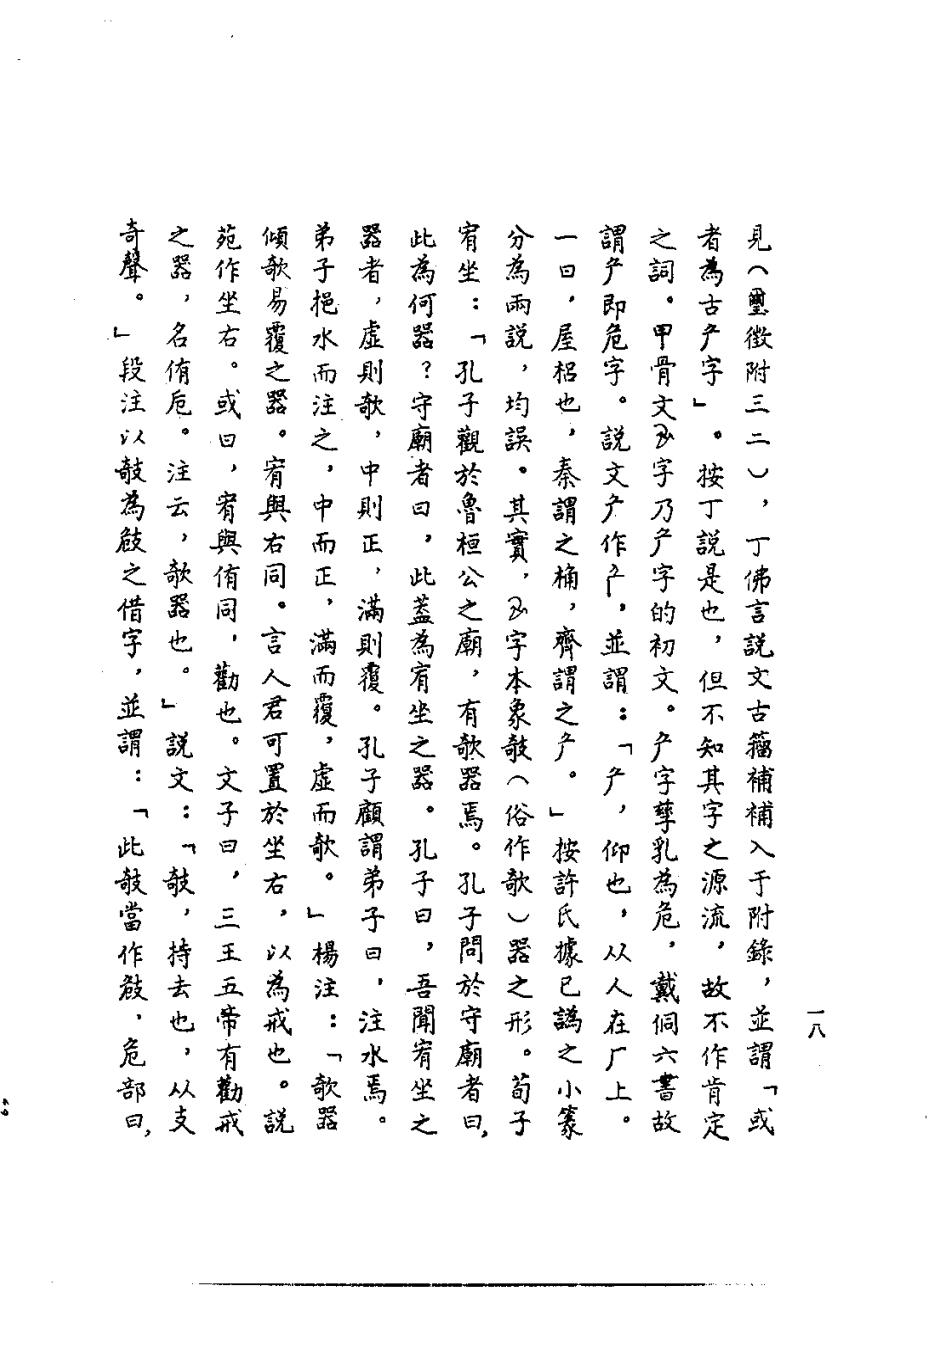 見（璽徵附三二），丁佛言說文古籀補補入于附錄，並謂「或
者為古厃字」。按丁說是也，但不知其字之源流，故不作肯定
之詞。甲骨文字乃厃字的初文。厃字孳乳為危，戴侗六書故
謂厃即危字。說文厃作，並謂：「厃，仰也，从人在厂上。
一曰，屋梠也，秦謂之桷，齊謂之厃。」按許氏據已譌之小篆
分為兩說，均誤。其實，字本象攲（俗作欹）器之形。荀子
宥坐：「孔子觀於魯桓公之廟，有欹器焉。孔子問於守廟者曰，
此為何器？守廟者曰，此蓋為宥坐之器。孔子曰，吾聞宥坐之
器者，虛則欹，中則正，滿則覆。孔子顧謂弟子曰，注水焉。
弟子挹水而注之，中而正，滿而覆，虛而欹。」楊注：「欹器
傾欹易覆之器。宥與右同。言人君可置於坐右，以為戒也。說
苑作坐右。或曰，宥與侑同，勸也。文子曰，三王五帝有勸戒
之器，名侑卮。注云，欹器也。」說文：「攲，持去也，从支
奇聲。」段注以攲為㩻之借字，並謂：「此攲當作㩻，危部曰，
一八